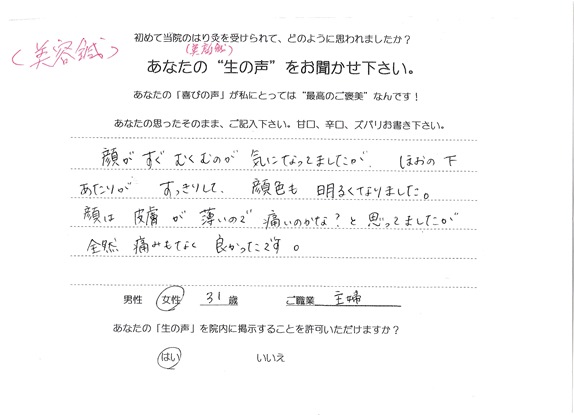 (美容鍼)
初めて当院のはり灸を受けられて、どのように思われましたか?
(美容鍼)
あなたの“生の声”をお聞かせ下さい。
あなたの「喜びの声」が私にとっては“最高のご褒美”なんです!
あなたの思ったそのまま、ご記入下さい。甘口、辛口、ズバリお書き下さい。
顔がすぐむくむのが 気になってましたが、ほおの下
あたりが すっきりして、顔色も 明るくなりました。
顔は 皮膚が 薄いので 痛いのかな?と思ってましたが
全然 痛みもなく 良かったです。
男性 女性 31歳 ご職業 主婦
あなたの「生の声」を院内に掲示することを許可いただけますか?
はい いいえ